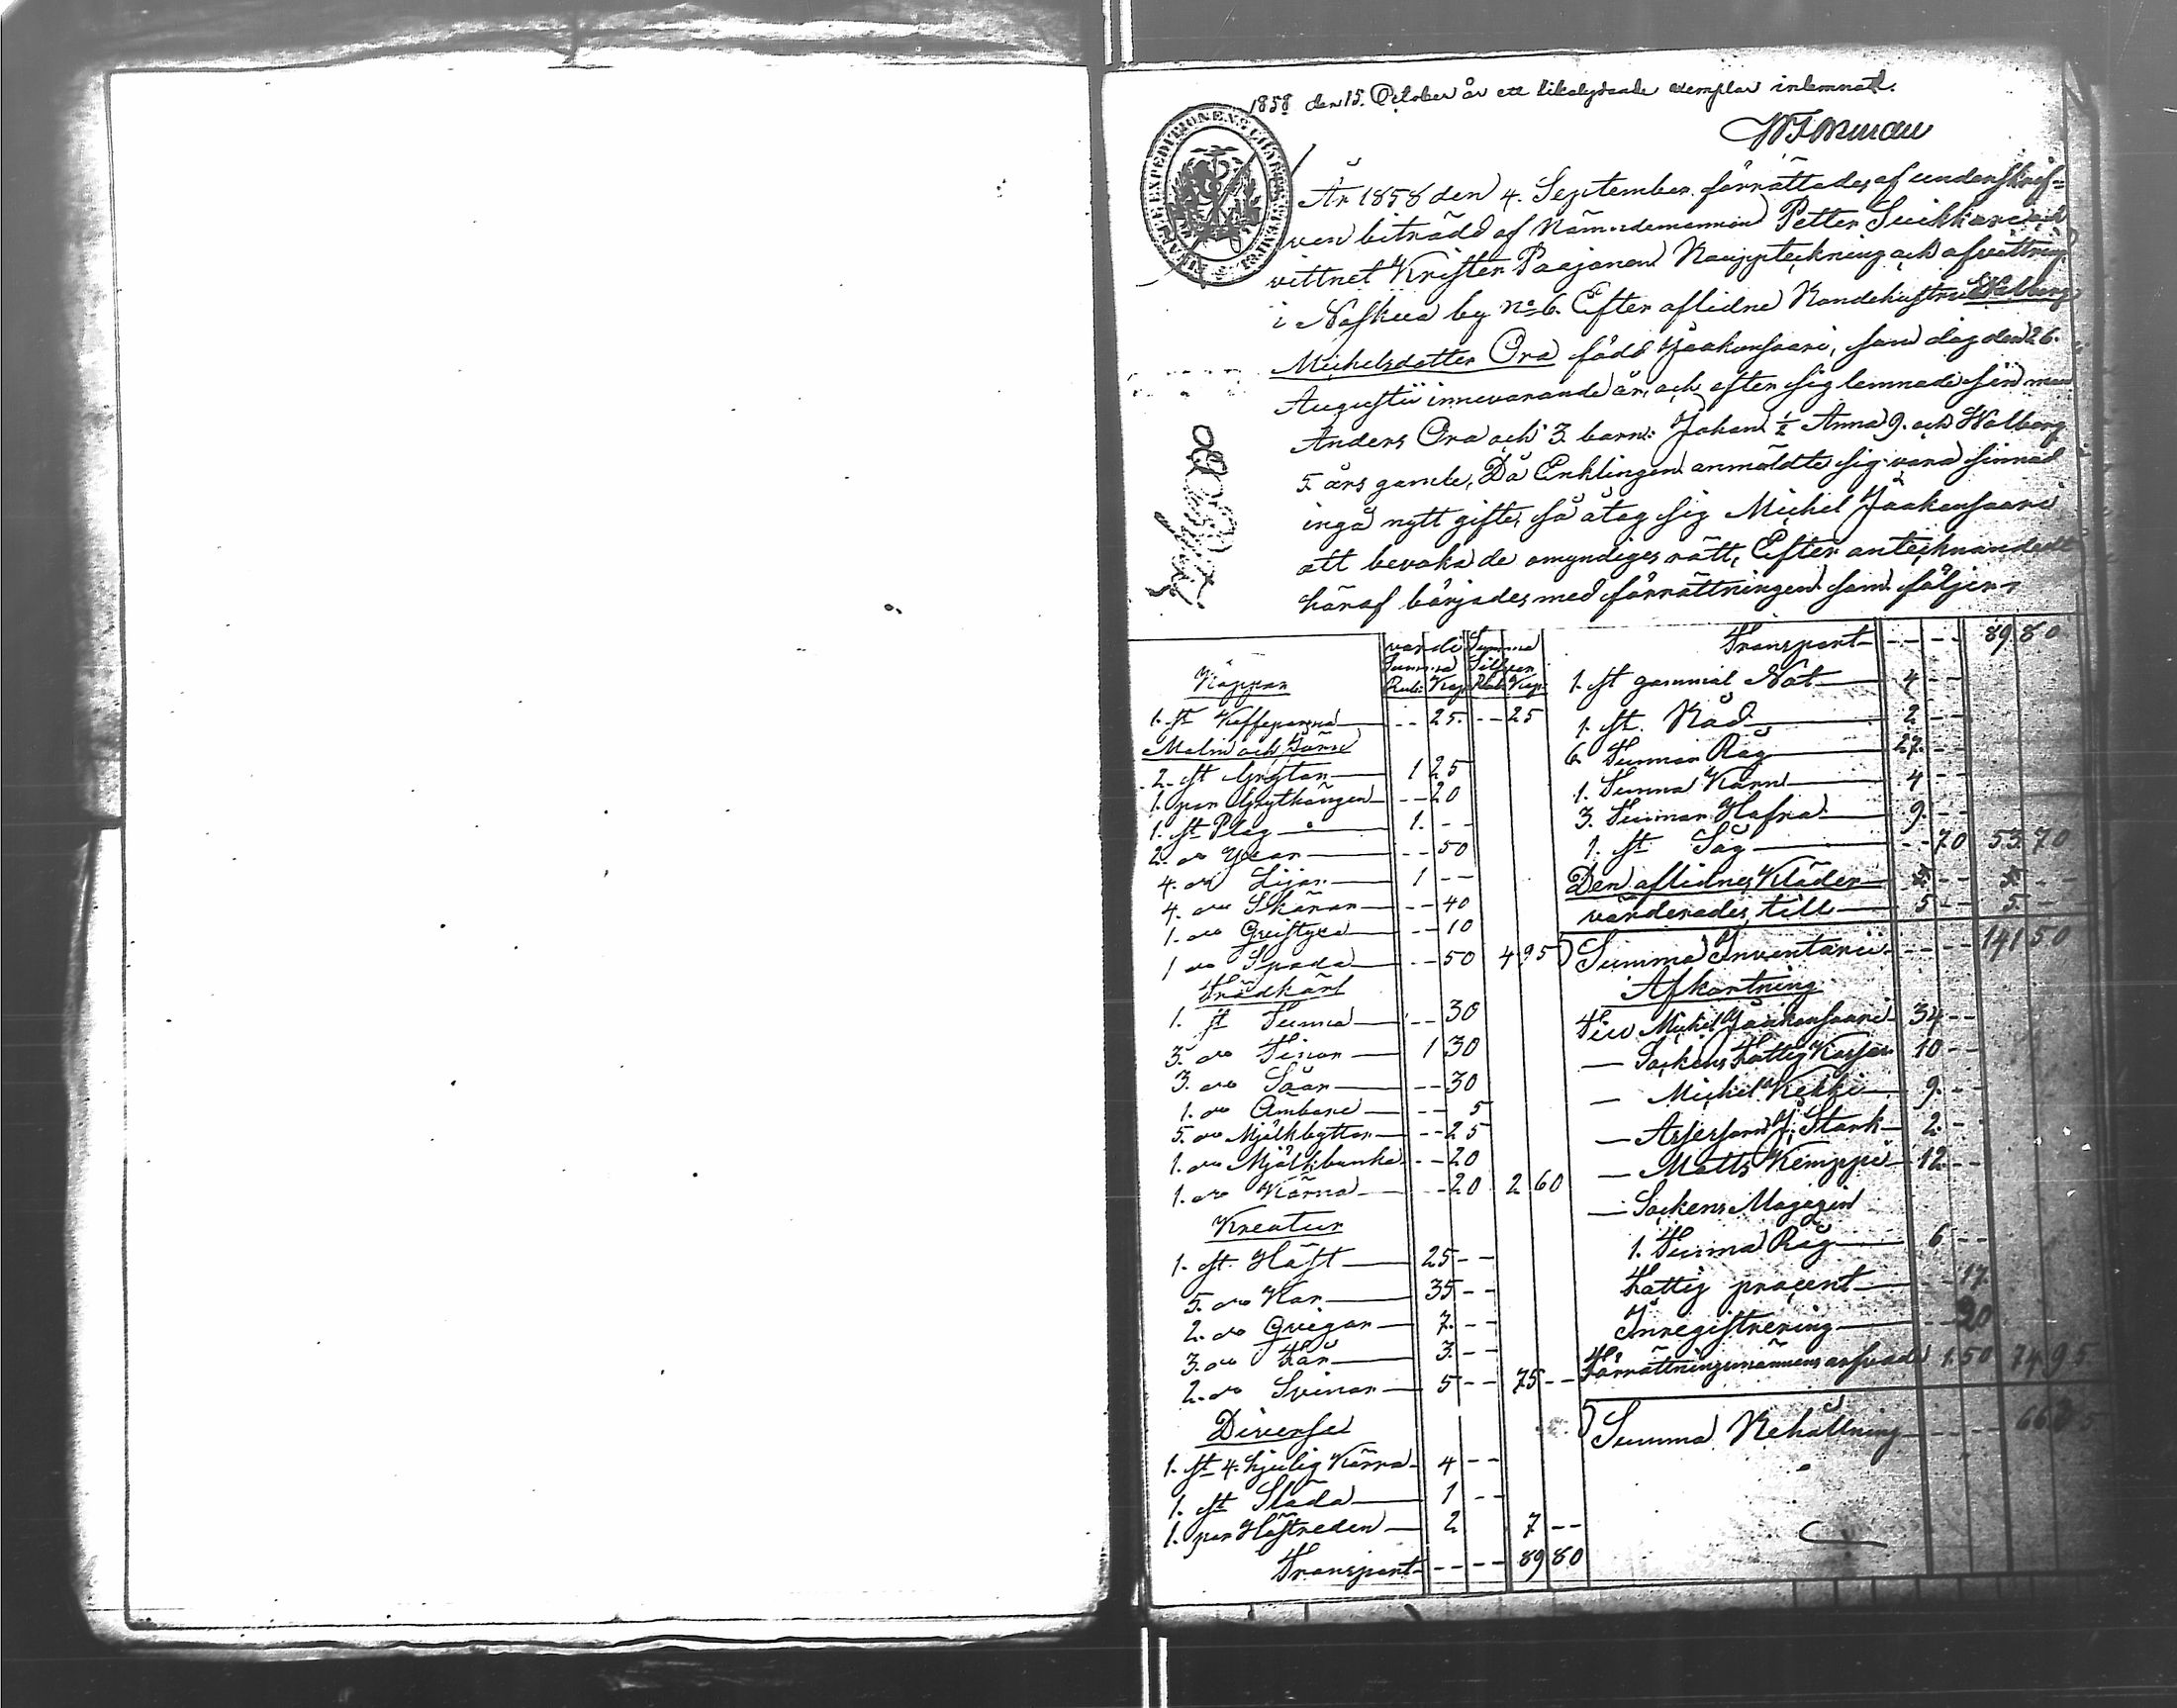 1858 den 15. October är ett likalydande exemplar inlemnadt.
År 1858 den 4. September förrättades af underskrif-
ven biträdd af Nämndemannen Petter Suikkari och
vittnet Krister Paajanen Bouppteckning och afvittring
i Naskua by No 6. Efter aflidne Bondehustrun Walborg
Michelsdotter Ora född Jaakonsaari, som dog den 26.
Augustii innevarande år, och efter sig lemnade sin man
Anders Ora och 3 barn: Johan 1/2 Anna 9. och Walborg
5 års gamle, Då Enklingen anmäldte sig vara sinnad
ingå nytt gifte, så åtog sig Michel Jaakonsaari
att bevaka de omyndiges rätt, Efter antecknandet
häraf börjades med förrättningen som följer,
värde Summa
Summa Silfver
Koppar Rub: Kop Rub: Kop:
1. st Kaffepanna -- 25. -- 25
Malm och Järn
2. st Grytor 1 25
1. par Grythängen -- 20
1. st Plog 1. --
2. do Yxor -- 50
4. do Liar 1 --
4. do Skäror -- 40
1. do -- 10
1 do Spada -- 50 4 95
Trädkärl
1. st Tunna -- 30
3. do Tinor 1 30
3. do Såar -- 30
1. do Ämbare -- 5
5. do Mjölkbyttor -- 25
1. do Mjölkbunka -- 20
1. do Kärna -- 20 2 60
Kreatur
1. st Häst 25 --
5. do Kor 35 --
2. do Qvigor 7. --
3. do Får 3. --
2. do Svinor 5 -- 75 --
Diverse
1. st 4. hjulig Kärra 4 --
1. st Släda 1 --
1. par Hästreden 2 7 --
Transport -- -- 89 80
Transport -- -- 89 80
1. st gammal Not 4 --
1. st. Båd 2 --
6 Tunnor Råg 27. --
1. Tunna Korn 4 --
3. Tunnor Hafra 9. --
1. st Såg -- 70 53 70
Den aflidnes Kläder 5 -- 5 --
värderades till 5 -- 5 --
Summa Inventarii -- -- 141 50
Afkortning
Till Michel Jaakonsaari 34 --
— Sockens Fattig Kassan 10 --
— Michel Kekki 9. --
— J. Stark 2. --
— Matts Kemppi 12 --
— Sockens Magazin
1. Tunna Råg 6 --
Fattig procent -- 17.
Inregistrering -- 20
Förrättningsmännens arfvode 1. 50 74 95
Summa Behållning -- --